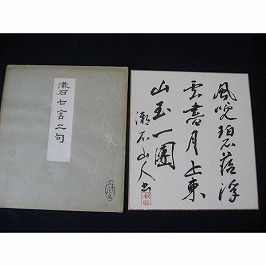 漱石七言二句
風吹碧落浮
雲盡月上東
山玉一團
漱石山人書